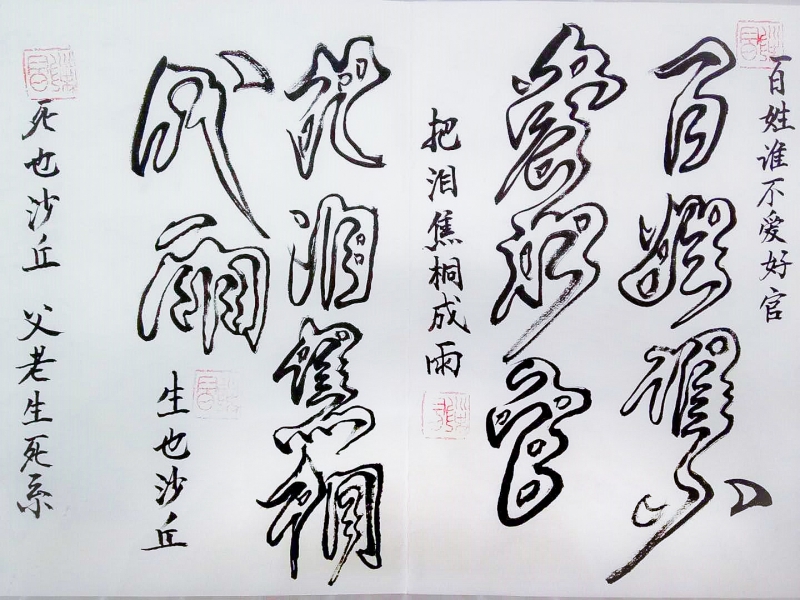 百姓谁不爱好官
百姓谁不
爱好官
把泪焦桐成雨
把泪焦桐
成雨
生也沙丘
死也沙丘 父老生死系